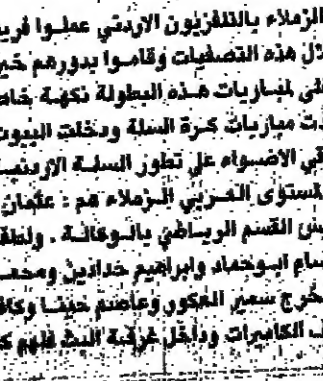 الزملاء بالتلفزيون الاردني عملوا فريـ
لال هذه التصفيات وقاموا بدورهم خير
على لمباريات هذه البطولة نكهة خاصـ
ت مباريات كرة السلة ودخلت البيوت
قي الاضواء على تطور السلة الاردنيـ
لمستوى العربي الزملاء هم : عثمان
ئس القسم الرياضي بالوكالة . ولطفـ
سام ابوحماد وابراهيم حدادين ومحمـ
خرج سمير العكور وعاصم حينا وكافـ
الكاميرات وداخل غرفة البث فلهم كـ